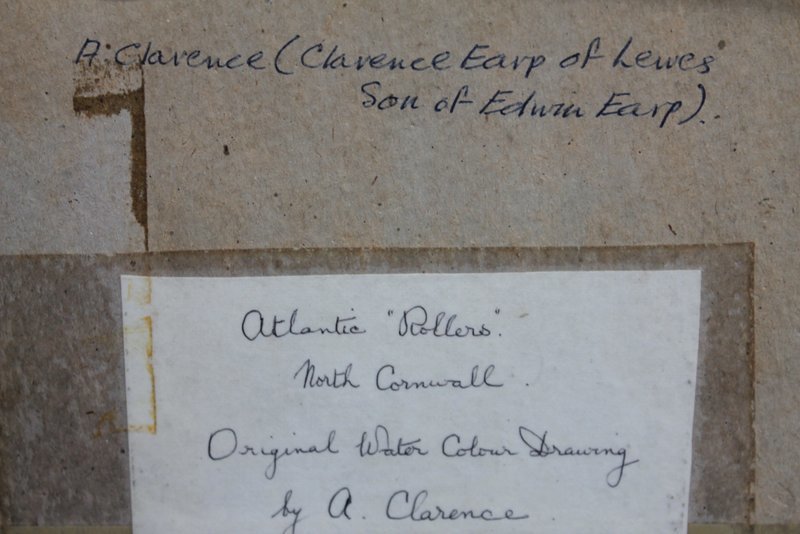 A. Clarence (Clarence Earp of Lewes
Son of Edwin Earp).
Atlantic "Rollers".
North Cornwall.
Original Water Colour Drawing
by A. Clarence.